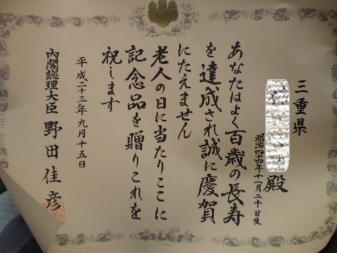 三重県
殿
明治四十四年十一月二十日生
あなたはよく百歳の長寿
を達成され誠に慶賀
にたえません
老人の日に当たりここに
記念品を贈りこれを
祝します
平成二十三年九月十五日
内閣総理大臣 野田佳彦